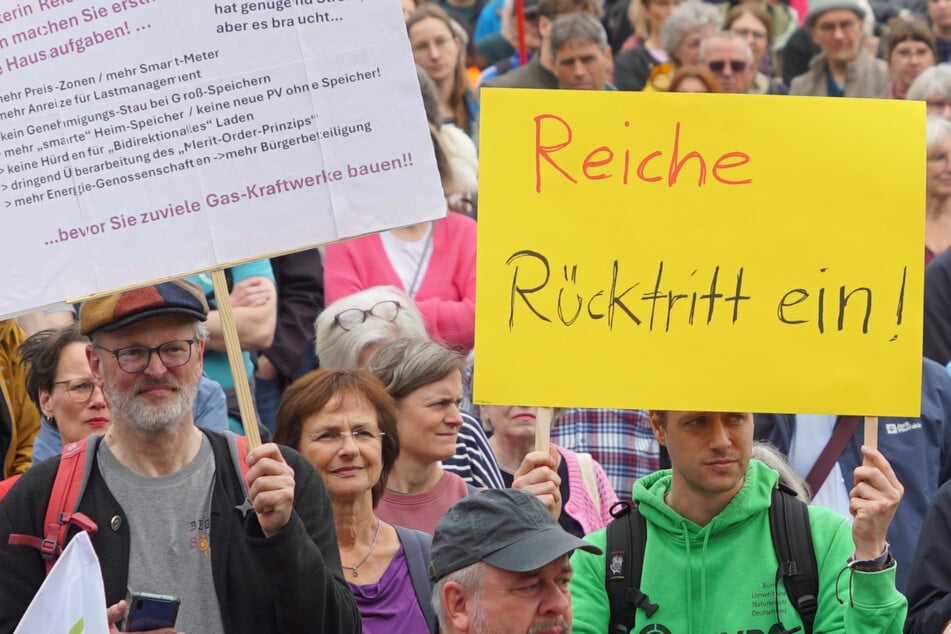 terin Reiche
n machen Sie erst
e Haus aufgaben! ...
hat genügend
aber es braucht...
mehr Preis-Zonen / mehr Smart-Meter
mehr Anreize für Lastmanagement
kein Genehmigungs-Stau bei Groß-Speichern
> mehr „smarte" Heim-Speicher / keine neue PV ohne Speicher!
> keine Hürden für „Bidirektionales" Laden
> dringend Überarbeitung des „Merit-Order-Prinzips"
> mehr Energie-Genossenschaften ->mehr Bürgerbeteiligung
...bevor Sie zuviele Gas-Kraftwerke bauen!!
Reiche
Rücktritt ein!